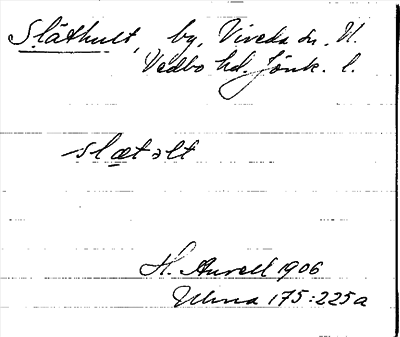 Släthult, by, Vireda sn. N.
Vedbo hd. Jönk. l.
slætəlt
H. Aurell 1906
Ulma 175:225a